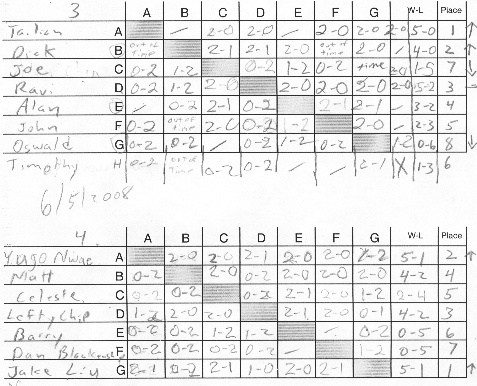 3 A B C D E F G W-L Place
A / 2-0 2-0 / 2-0 2-0 2-0 5-0 1 ↑
Dick B out of time 2-1 2-1 2-0 out of time 2-0 / 4-0 2 ↑
Joe C 0-2 1-2 0-2 1-2 0-2 time 2-0 1-5 7 ↓
Ravi D 0-2 1-2 2-0 2-0 2-0 2-0 2-0 5-2 3
Alan E / 0-2 2-1 0-2 2-1 2-1 / 3-2 4
John F 0-2 out of time 2-0 0-2 1-2 2-0 / 2-3 5
Oswald G 0-2 0-2 / 0-2 1-2 0-2 1-2 0-6 8 ↓
Timothy H 0-2 out of time 0-2 0-2 / / 2-1 X 1-3 6
6/5/2008
4 A B C D E F G W-L Place
Yugo A 2-0 2-0 2-1 2-0 2-0 1-2 5-1 2 ↑
Matt B 0-2 2-0 0-2 2-0 2-0 2-0 4-2 4
Celeste C 0-2 0-2 0-2 2-1 2-0 1-2 2-4 5
Lefty Chip D 1-2 2-0 2-0 2-1 2-0 0-2 4-2 3
Barry E 0-2 0-2 1-2 1-2 / 0-2 0-5 6
Dan F 0-2 0-2 0-2 0-2 / 1-2 0-5 7
Jake Liu G 2-1 0-2 2-1 2-0 2-0 2-1 5-1 1 ↑